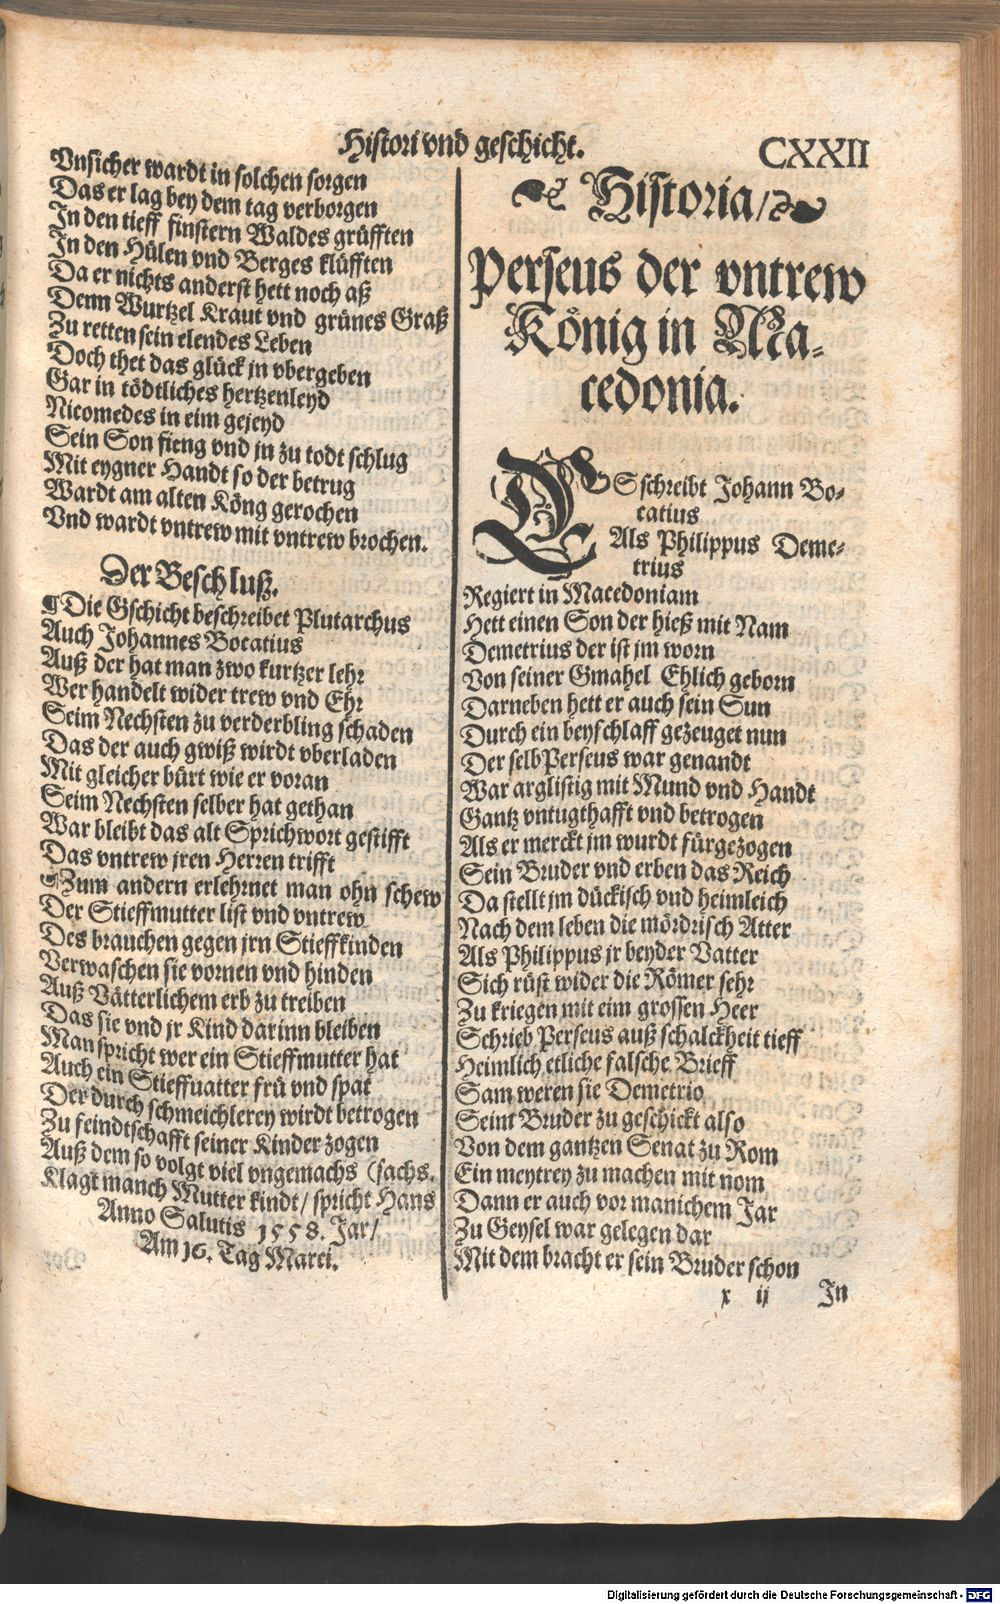 Histori vnd geschicht.
CXXII
Vnsicher wardt in solchen sorgen
Das er lag bey dem tag verborgen
In den tieff finstern Waldes grüfften
In den Hülen vnd Berges klüfften
Da er nichts anderst hett noch aß
Denn Wurtzel Kraut vnd grünes Graß
Zu retten sein elendes Leben
Doch thet das glück jn vbergeben
Gar in tödtliches hertzenleyd
Nicomedes in eim gejeyd
Sein Son fieng vnd jn zu todt schlug
Mit eygner Handt so der betrug
Wardt am alten Köng gerochen
Vnd wardt vntrew mit vntrew brochen.
Der Beschluß.
¶ Die Gschicht beschreibet Plutarchus
Auch Johannes Bocatius
Auß der hat man zwo kurtzer lehr
Wer handelt wider trew vnd Ehr
Seim Nechsten zu verderbling schaden
Das der auch gwiß wirdt vberladen
Mit gleicher bürt wie er voran
Seim Nechsten selber hat gethan
War bleibt das alt Sprichwort gestifft
Das vntrew jren Herren trifft
¶ Zum andern erlehrnet man ohn schew
Der Stieffmutter list vnd vntrew
Des brauchen gegen jrn Stieffkinden
Verwaschen sie vornen vnd hinden
Auß Vätterlichem erb zu treiben
Das sie vnd jr Kind darinn bleiben
Man spricht wer ein Stieffmutter hat
Auch ein Stieffuatter frü vnd spat
Der durch schmeichlerey wirdt betrogen
Zu feindtschafft seiner Kinder zogen
Auß dem so volgt viel vngemachs (sachs.
Klagt manch Mutter kindt/ spricht Hans
Anno Salutis 1558. Jar/
Am 16. Tag Marci.
Historia/
Perseus der vntrew
König in Ma-
cedonia.
ES schreibt Johann Bo-
catius
Als Philippus Deme-
trius
Regiert in Macedoniam
Hett einen Son der hieß mit Nam
Demetrius der ist jm worn
Von seiner Gmahel Ehlich geborn
Darneben hett er auch sein Sun
Durch ein beyschlaff gezeuget nun
Der selb Perseus war genandt
War arglistig mit Mund vnd Handt
Gantz vntugthafft vnd betrogen
Als er merckt jm wurdt fürgezogen
Sein Bruder vnd erben das Reich
Da stellt jm dückisch vnd heimleich
Nach dem leben die mördrisch Atter
Als Philippus jr beyder Vatter
Sich rüst wider die Römer sehr
Zu kriegen mit eim grossen Heer
Schrieb Perseus auß schalckheit tieff
Heimlich etliche falsche Brieff
Sam weren sie Demetrio
Seim Bruder zu geschickt also
Von dem gantzen Senat zu Rom
Ein meytrey zu machen mit nom
Dann er auch vor manichem Jar
Zu Geysel war gelegen dar
Mit dem bracht er sein Bruder schon
x ij
In
Digitalisierung gefördert durch die Deutsche Forschungsgemeinschaft - DFG